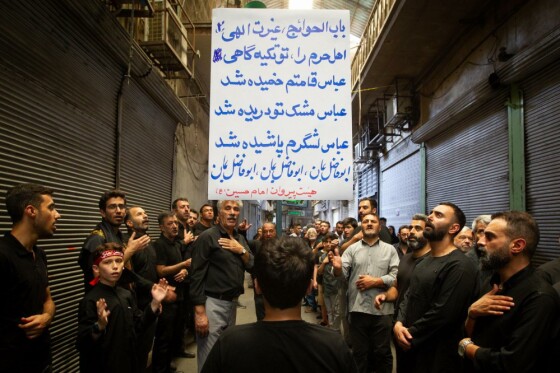 باب الحوائج، غیرت الهی
اهل حرم را، تو تکیه گاهی
عباس قامتم خمیده شد
عباس مشک تو دریده شد
عباس لشگرم پاشیده شد
ابوفاضل یان، ابوفاضل یان، ابوفاضل یان
هیئت پیروان امام حسین (ع)